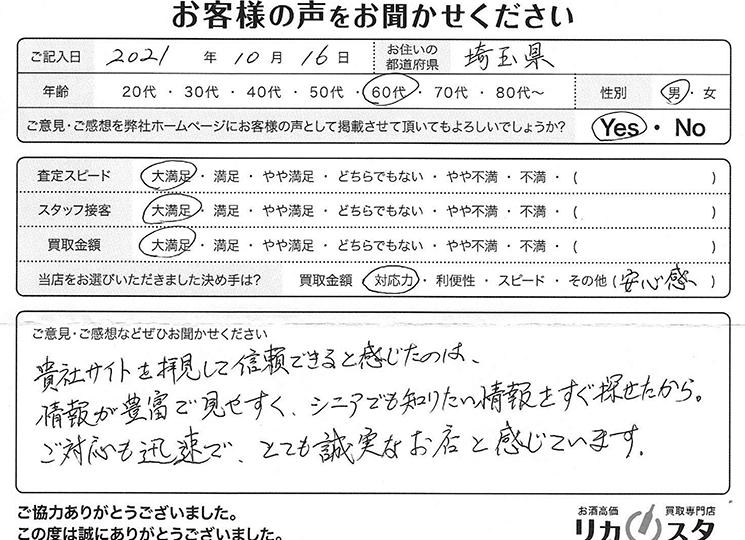 お客様の声をお聞かせください
ご記入日 2021 年 10 月 16 日 お住いの都道府県 埼玉県
年齢 20代・30代・40代・50代・60代・70代・80代〜 性別 男・女
ご意見・ご感想を弊社ホームページにお客様の声として掲載させて頂いてもよろしいでしょうか? Yes・No
査定スピード 大満足・満足・やや満足・どちらでもない・やや不満・不満・( )
スタッフ接客 大満足・満足・やや満足・どちらでもない・やや不満・不満・( )
買取金額 大満足・満足・やや満足・どちらでもない・やや不満・不満・( )
当店をお選びいただきました決め手は? 買取金額・対応力・利便性・スピード・その他(安心感、)
ご意見・ご感想などぜひお聞かせください
貴社サイトを拝見して信頼できると感じたのは、
情報が豊富で見やすく、シニアでも知りたい情報をすぐ探せたから。
ご対応も迅速で、とても誠実なお店と感じています。
ご協力ありがとうございました。
この度は誠にありがとうございました。
お酒高価 買取専門店
リカスタ